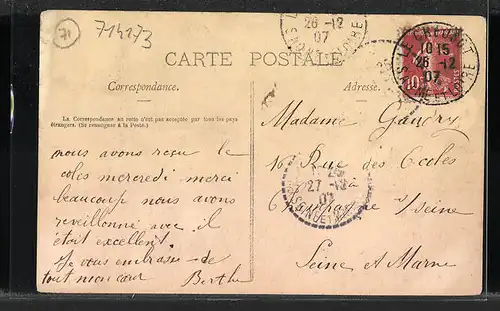 71
714173
26 -12
07
LE CREUSOT
10 15
26 -12
07
SAONE-ET-LOIRE
10
CARTE POSTALE
Correspondance.
Adresse.
La Correspondance au recto n'est pas acceptée par tous les pays
étrangers. (Se renseigner à la Poste.)
Madame Gaudry
16 Rue des Ecoles
à
Champagne s/seine
Seine et Marne
27 -12
07
nous avons reçu le
coles mercredi merci
beaucoup nous avons
reveillonné avec il
était excellent.
Je vous embrasse de
tout mon cœur Berthe